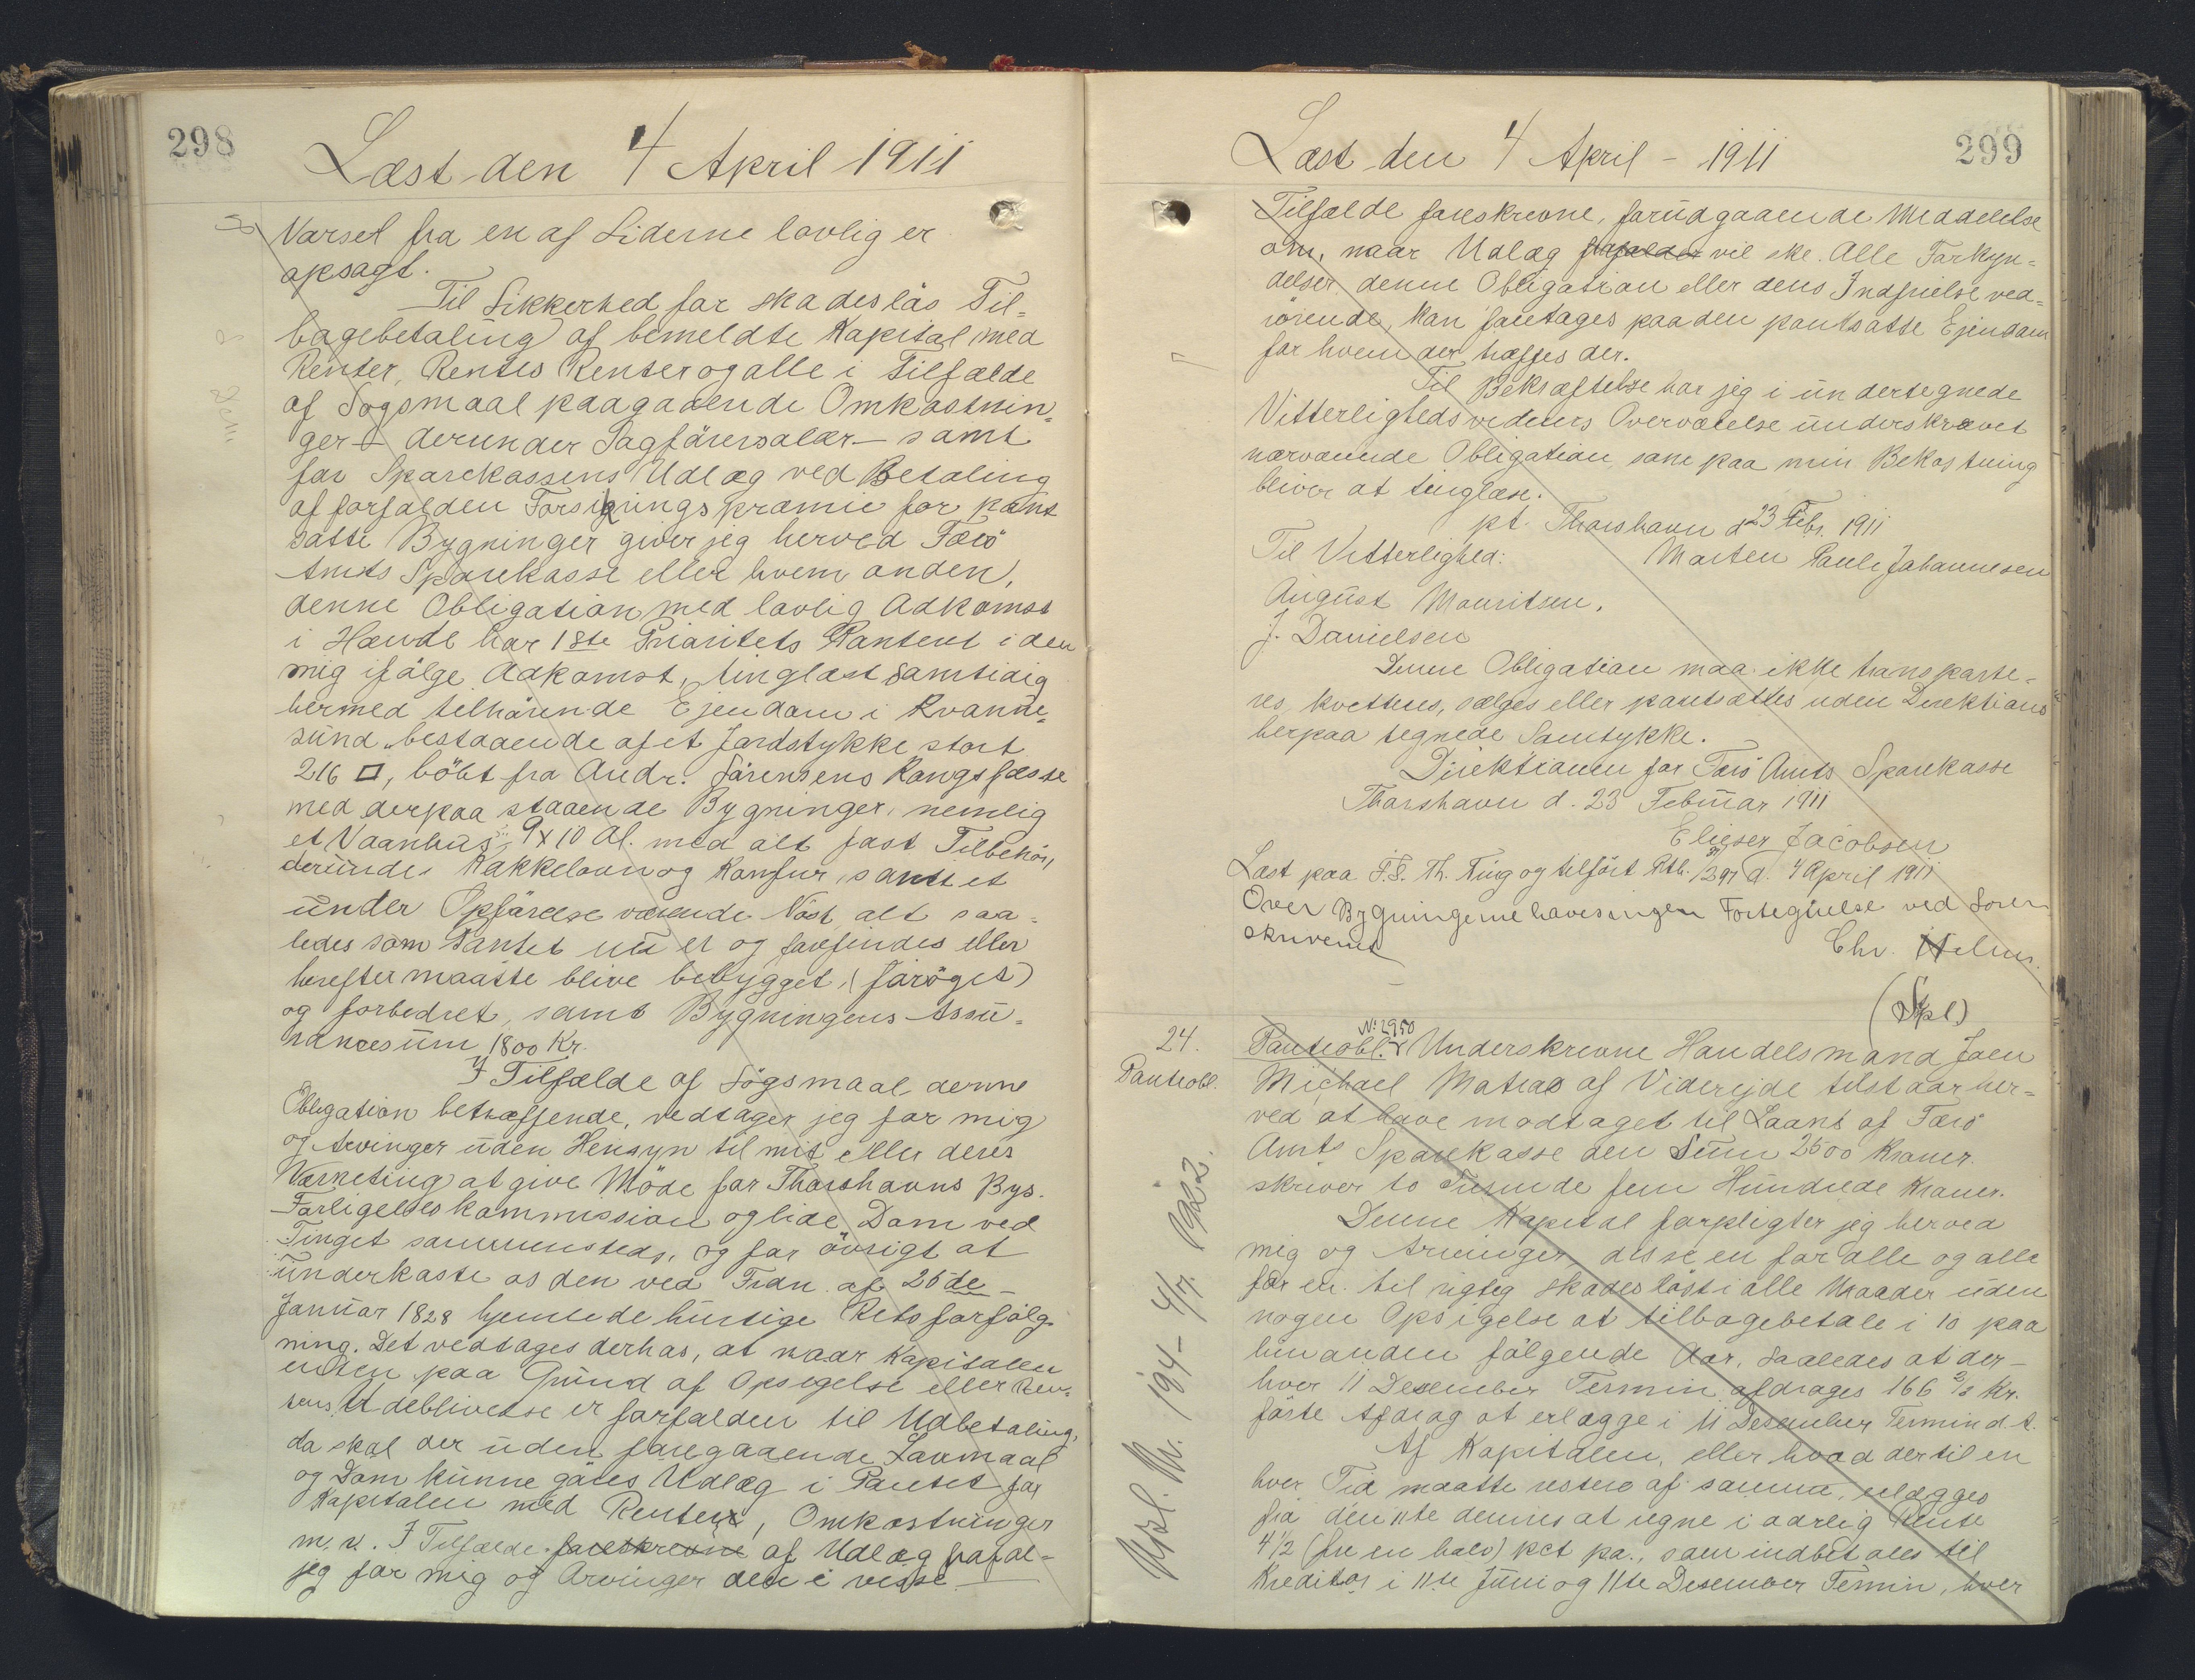 298
Læst den 4 April 1911
Varsel fra en af Siderne lovlig er
opsagt.
Til Sikkerhed for skadesløs Til=
bagebetaling af bemeldte Kapital med
Renter, Rentes Renter og alle i Tilfælde
af Søgsmaal paagaaende Omkostnin=
ger - derunder Sagførersalær - samt
for Sparekassens Udlæg ved Betaling
af forfalden Forsikringspræmie for pant
satte Bygninger giver jeg herved Færø
Amts Sparekasse eller hvem anden,
denne Obligation med lovlig Adkomst
i Hænde har 1ste Prioritets Panteret i den
mig ifølge Adkomst, tinglæst samtidig
hermed tilhørende Ejendom i Kvanne=
sund bestaaende af et Jordstykke stort
216 □, købt fra Andr. Sørensens Kongsfæste
med derpaa staaende Bygninger, nemlig
et Vaanhus, 9 x 10 Al. med alt fast Tilbehør,
derunder Kakkelovn og Komfur, samt et
under Opførelse værende Nøst, alt saa=
ledes som Pantet nu er og forefindes eller
herefter maatte blive bebygget, (forøget)
og forbedret, samt Bygningens Assu=
rancesum 1800 Kr.
I Tilfælde af Søgsmaal denne
Obligation betræffende, vedtager jeg for mig
og Arvinger uden Hensyn til mit eller deres
Værneting at give Møde for Thorshavns Bys.
Forligelseskommission og lide Dom ved
Tinget sammensteds, og for øvrigt at
underkaste os den ved Frdn. af 25de
Januar 1828 hjemlede hurtige Retsforfølg
ning. Det vedtages derhos, at naar Kapitalen
enten paa Grund af Opsigelse eller Ren=
tens Udeblivelse er forfalden til Udbetaling,
da skal der uden foregaaende Lovmaal
og Dom kunne gøres Udlæg i Pantet for
Kapitalen med Renter, Omkostninger
m. v. I Tilfælde foreskrevne af Udlæg frafal=
jeg for mig og Arvinger den i visse
299
Læst den 4 April - 1911
Tilfælde foreskrevne, forudgaaende Meddelelse
om, naar Udlæg forfalder vil ske. Alle Forkyn=
delser denne Obligation eller dens Indfrielse ved=
rørende, kan foretages paa den pantsatte Ejendom
for hvem der træffes der.
Til Bekræftelse har jeg i undertegnede
Vitterlighedsvidners Overværelse underskrevet
nærværende Obligation som paa min Bekostning
bliver at tinglæse.
pt. Thorshavn d. 23 Febr. 1911
Til Vitterlighed:
Morten Pauli Johannesen
August Mouritsen.
J. Danielsen
Denne Obligation maa ikke transporte=
res, kvitteres, sælges eller pantsættes uden Direktions
herpaa tegnede Samtykke.
Direktionen for Færø Amts Sparekasse
Thorshavn d. 23 Februar 1911
Elieser Jacobsen
Læst paa F.S. Th. Ting og tilført Ptb. 297 d. 4 April 1911
Over Bygningerne haves ingen Fortegnelse ved Soren
skriveriet
Chr. Holm.
(Spl)
24.
Panteobl.
Panteobl. No. 2950 Underskrevne Handelsmand Joen
Michael Matras af Viderejde tilstaar her=
ved at have modtaget til Laans af Færø
Amts Sparekasse den Sum 2500 Kroner.
skriver to Tusinde fem Hundrede Kroner.
Denne Kapital forpligter jeg herved
mig og Arvinger, disse en for alle og alle
for en. til rigtig skadesløst i alle Maader uden
nogen Opsigelse at tilbagebetale i 10 paa
hinanden følgende Aar, saaledes at der-
hver 11 Desember Termin afdrages 166 2/3 Kr.
første Afdrag at erlægge i 11 Desember Termin d. A.
Af Kapitalen, eller hvad der til en
hver Tid maatte restere af samme, erlægges
fra den 11te dennes at regne i aarlig Rente
4 1/2 (fire en halv) pct pa., som indbetales til
Kreditor i 11te Juni og 11te Desember Termin, hver
4/7 1922.